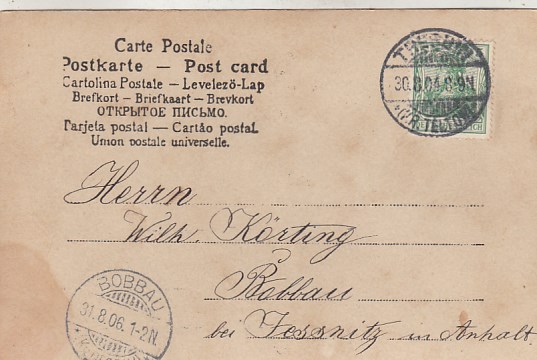 Carte Postale
Postkarte — Post card
Cartolina Postale – Levelező-Lap
Brefkort – Briefkaart – Brevkort
ОТКРЫТОЕ ПИСЬМО.
Tarjeta postal — Cartão postal
Union postale universelle.
30.8.04.8-9N
(KR. TELTOW)
Herrn
Wilh. Körting
Bobbau
bei Jessnitz in Anhalt.
BOBBAU
31.8.06.1-2N.